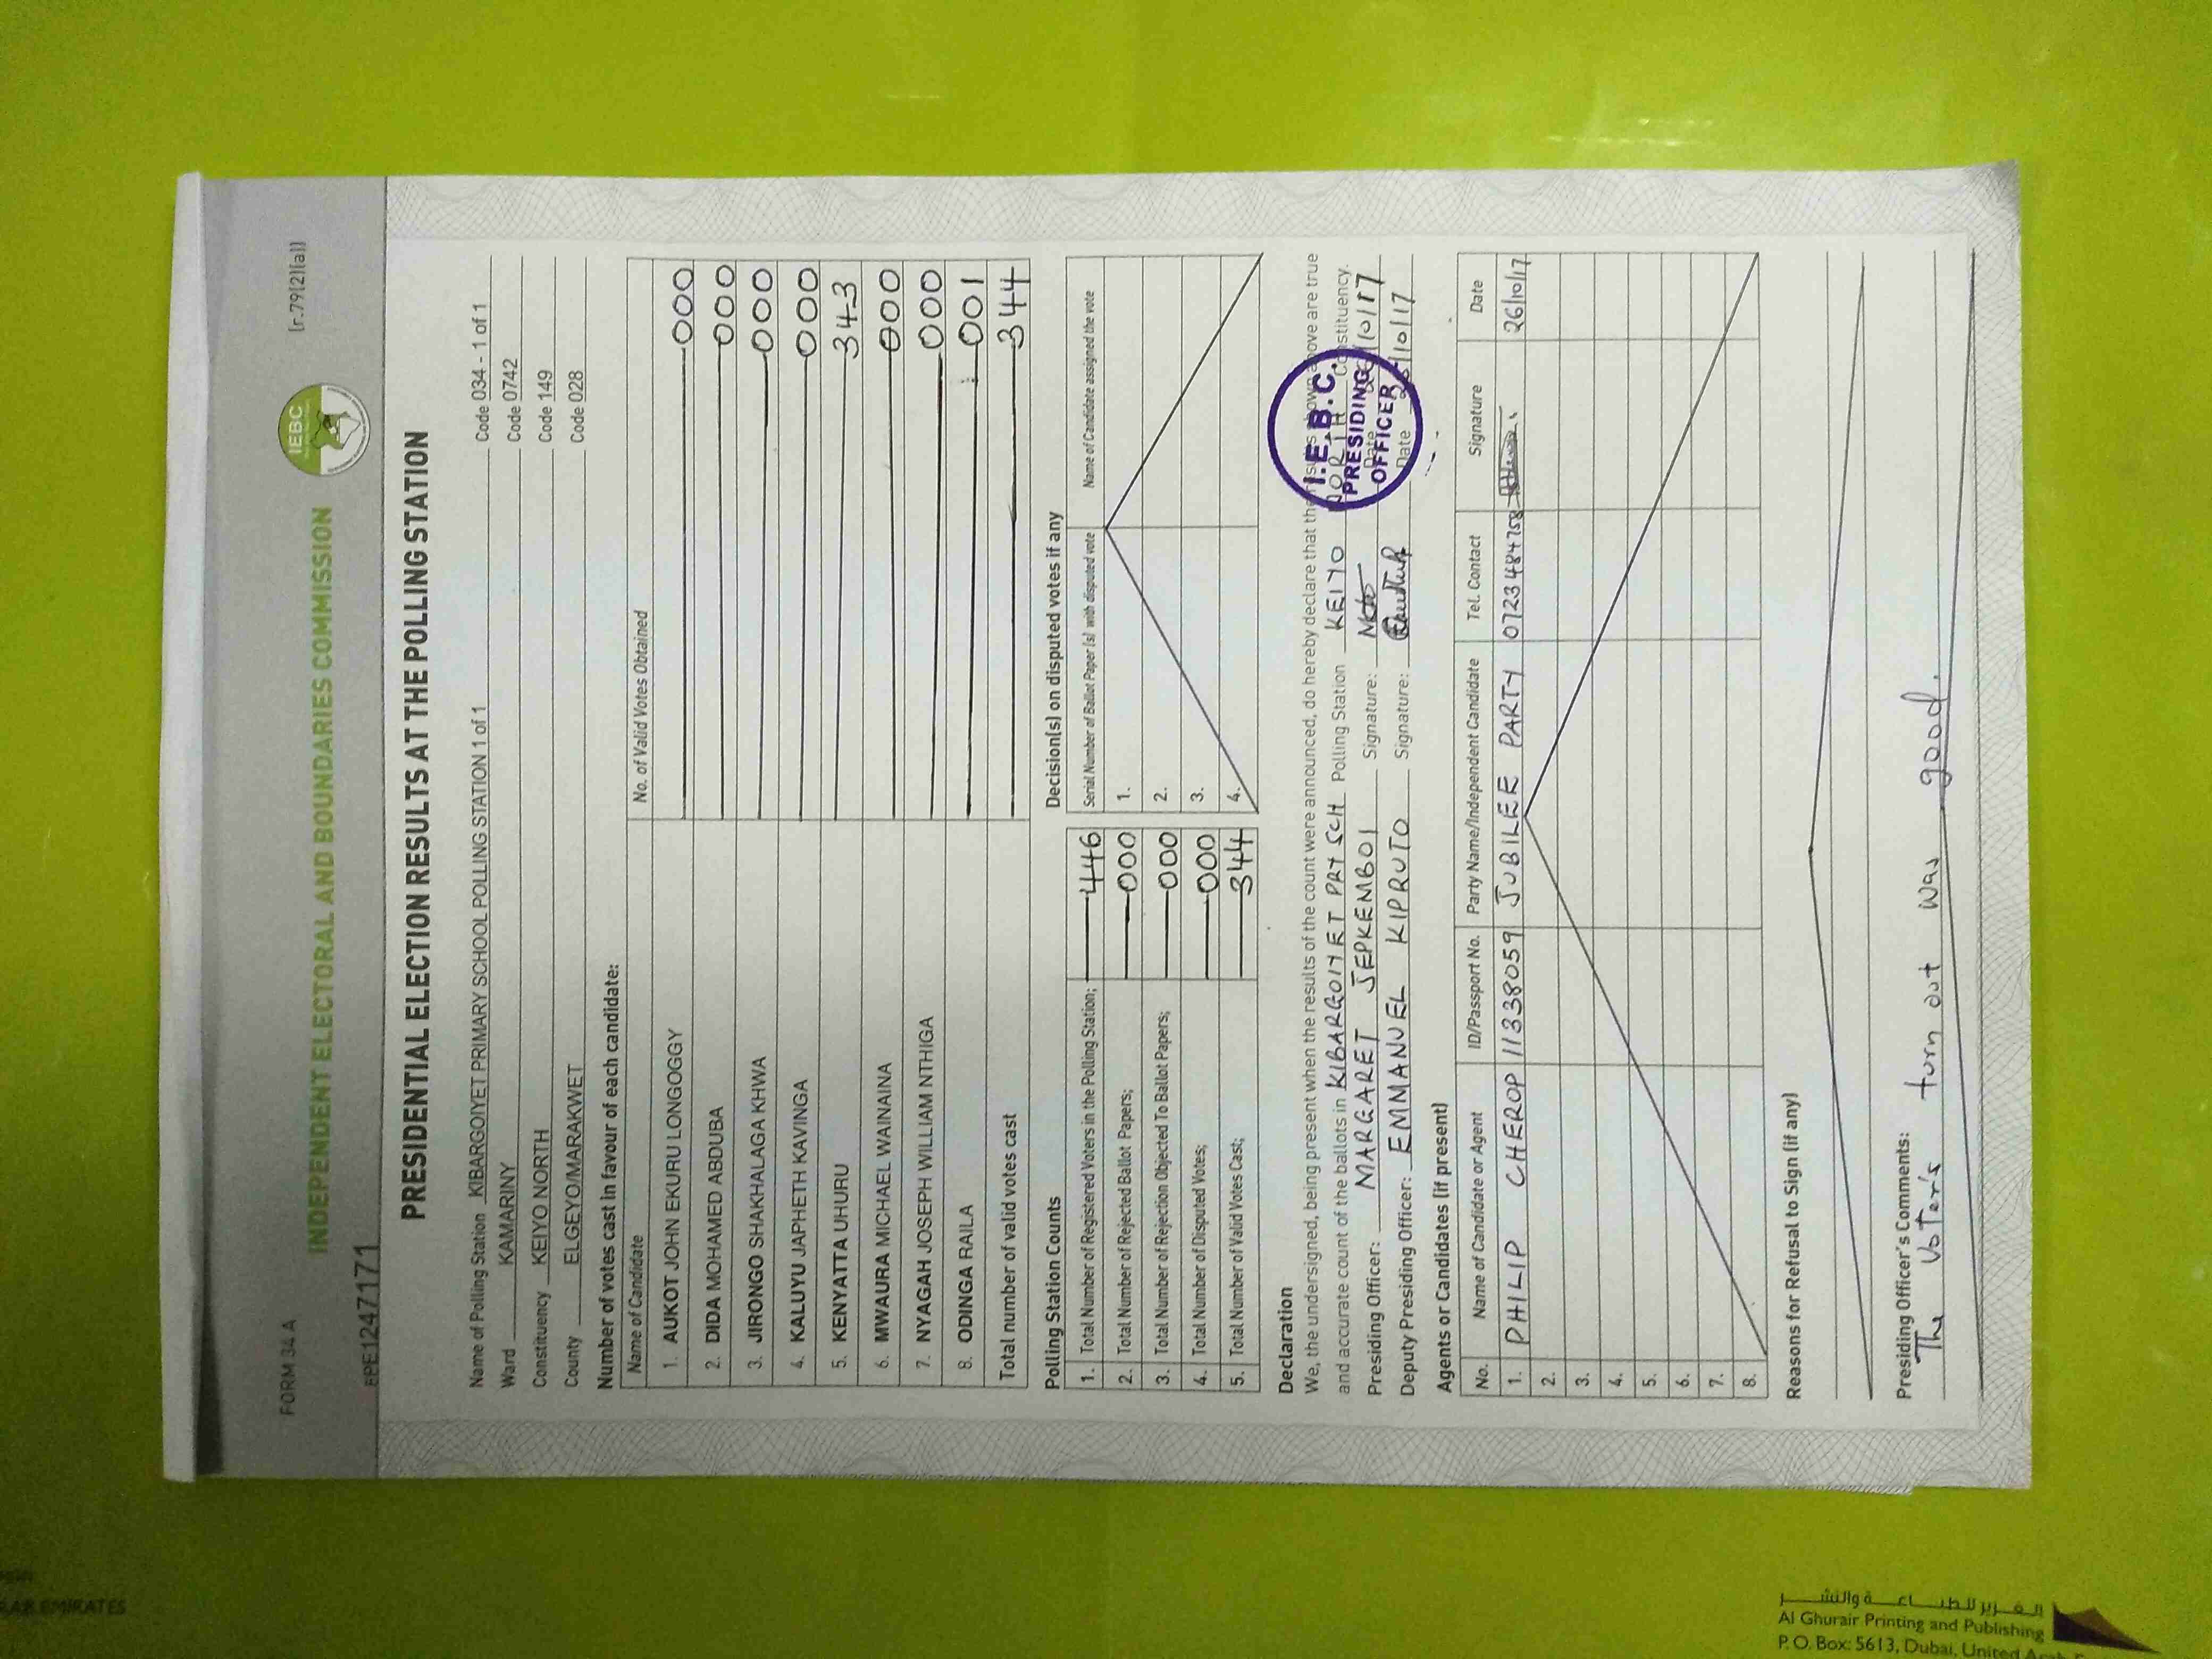 FORM 34 A
(r.79(2)(a))
IEBC
INDEPENDENT ELECTORAL AND BOUNDARIES COMMISSION
PRESIDENTIAL ELECTION RESULTS AT THE POLLING STATION
Name of Polling Station KIBARGOIYET PRIMARY SCHOOL POLLING STATION 1 of 1 Code 034 - 1 of 1
Ward KAMARINY Code 0742
Constituency KEIYO NORTH Code 149
County ELGEYO/MARAKWET Code 028
Number of votes cast in favour of each candidate:
Name of Candidate No. of Valid Votes Obtained
1. AUKOT JOHN EKURU LONGOGGY 000
2. DIDA MOHAMED ABDUBA 000
3. JIRONGO SHAKHALAGA KHWA 000
4. KALUYU JAPHETH KAVINGA 000
5. KENYATTA UHURU 343
6. MWAURA MICHAEL WAINAINA 000
7. NYAGAH JOSEPH WILLIAM NTHIGA 000
8. ODINGA RAILA 001
Total number of valid votes cast 344
Polling Station Counts
1. Total Number of Registered Voters in the Polling Station; 446
2. Total Number of Rejected Ballot Papers; 000
3. Total Number of Rejection Objected To Ballot Papers; 000
4. Total Number of Disputed Votes; 000
5. Total Number of Valid Votes Cast; 344
Decision(s) on disputed votes if any
Serial Number of Ballot Paper (s) with disputed vote Name of Candidate assigned the vote
1.
2.
3.
4.
Declaration
We, the undersigned, being present when the results of the count were announced, do hereby declare that the above are true
and accurate count of the ballots in KIBARGOIYET PRY SCH Polling Station KEIYO NORTH Constituency.
Presiding Officer: MARGARET JEPKEMBOI Signature: Date
Deputy Presiding Officer: EMMANUEL KIPRUTO Signature: Date
I.E.B.C.
PRESIDING
OFFICER
Agents or Candidates (if present)
No. Name of Candidate or Agent ID/Passport No. Party Name/Independent Candidate Tel. Contact Signature Date
1. PHILIP CHEROP 11338059 JUBILEE PARTY 0723484758 26/10/17
2.
3.
4.
5.
6.
7.
8.
Reasons for Refusal to Sign (if any)
Presiding Officer's Comments:
The voter's turn out was good.
الغرير للطباعة والنشر
Al Ghurair Printing and Publishing
P. O. Box: 5613, Dubai, United
EMIRATES